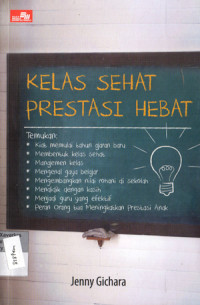 KELAS SEHAT
PRESTASI HEBAT
Temukan:
Kiat memulai tahun ajaran baru
Membentuk kelas sehat
Manajemen kelas
Mengenal gaya belajar
Mengembangkan nilai moral di sekolah
Mengajar dengan kasih
Menjadi guru yang efektif
Peran Orang tua Meningkatkan Prestasi Anak
Jenny Gichara